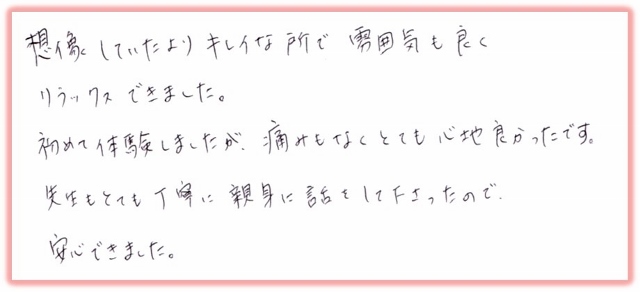 想像していたよりキレイな所で 雰囲気も良く
リラックスできました。
初めて体験しましたが、痛みもなくとても心地良かったです。
先生もとても丁寧に親身に話をして下さったので、
安心できました。